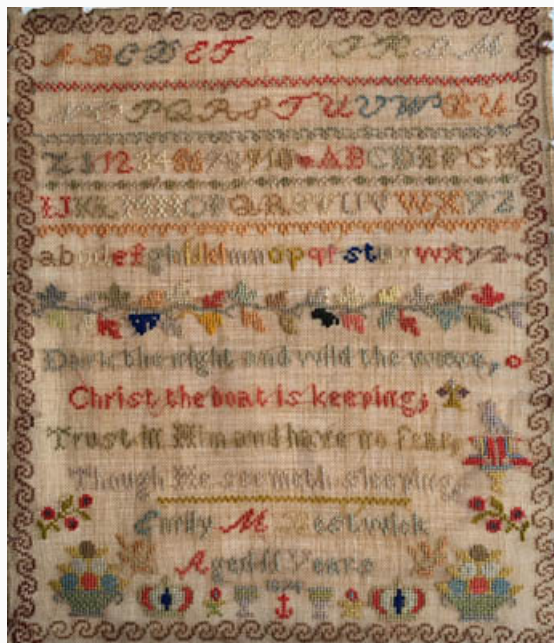 A B C D E F G H I K L M
N O P Q R S T U V W X Y
Z 1 2 3 4 5 6 7 8 9 10 A B C D E F G H
I J K L M N O P Q R S T U V W X Y Z
a b c d e f g h i j k l m n o p q r s t u v w x y z
Dark the night and wild the wave,
Christ the boat is keeping;
Trust in Him and have no fear,
Though He seemeth sleeping.
Emily M
Aged 11 Years